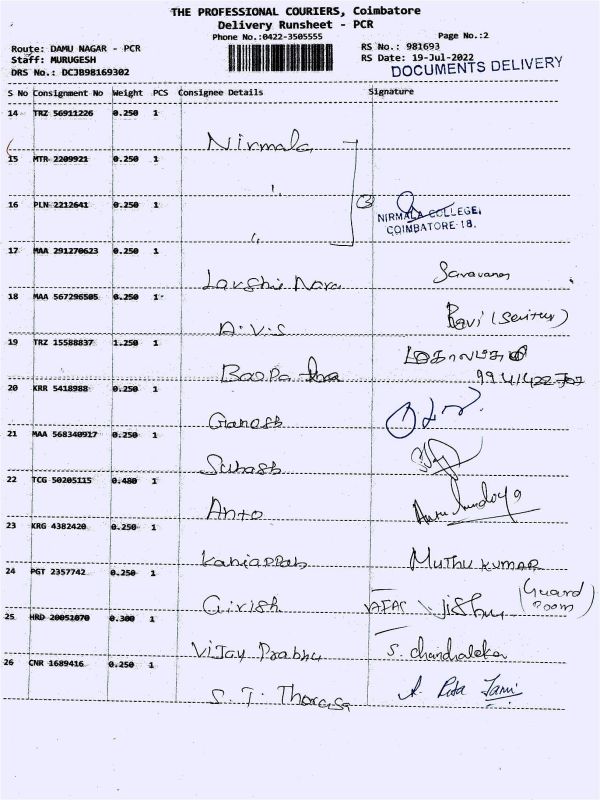 THE PROFESSIONAL COURIERS, Coimbatore
Delivery Runsheet - PCR
Phone No.:0422-3505555
Page No.:2
Route: DAMU NAGAR - PCR
RS No.: 981693
Staff: MURUGESH
RS Date: 19-Jul-2022
DRS No.: DCJB98169302
DOCUMENTS DELIVERY
S No Consignment No Weight PCS Consignee Details Signature
14 TRZ 56911226 0.250 1
Nirmala
15 MTR 2209921 0.250 1
"
16 PLN 2212641 0.250 1
"
3
NIRMALA COLLEGE,
COIMBATORE-18.
17 MAA 291270623 0.250 1
Saravanan
18 MAA 567296505 0.250 1
A.V.S
Ravi
19 TRZ 15588837 1.250 1
Boopa
20 KRR 5418988 0.250 1
Ganesh
21 MAA 568340917 0.250 1
Subash
22 TCG 50205115 0.480 1
Anto
23 KRG 4382420 0.250 1
MUTHU KUMAR
24 PGT 2357742 0.250 1
Girish
(Guard
Room)
25 HRD 20051070 0.300 1
Vijay Prabhu
S. Chandraleka
26 CNR 1689416 0.250 1
S. T. Tharasa
A. Rita Jami